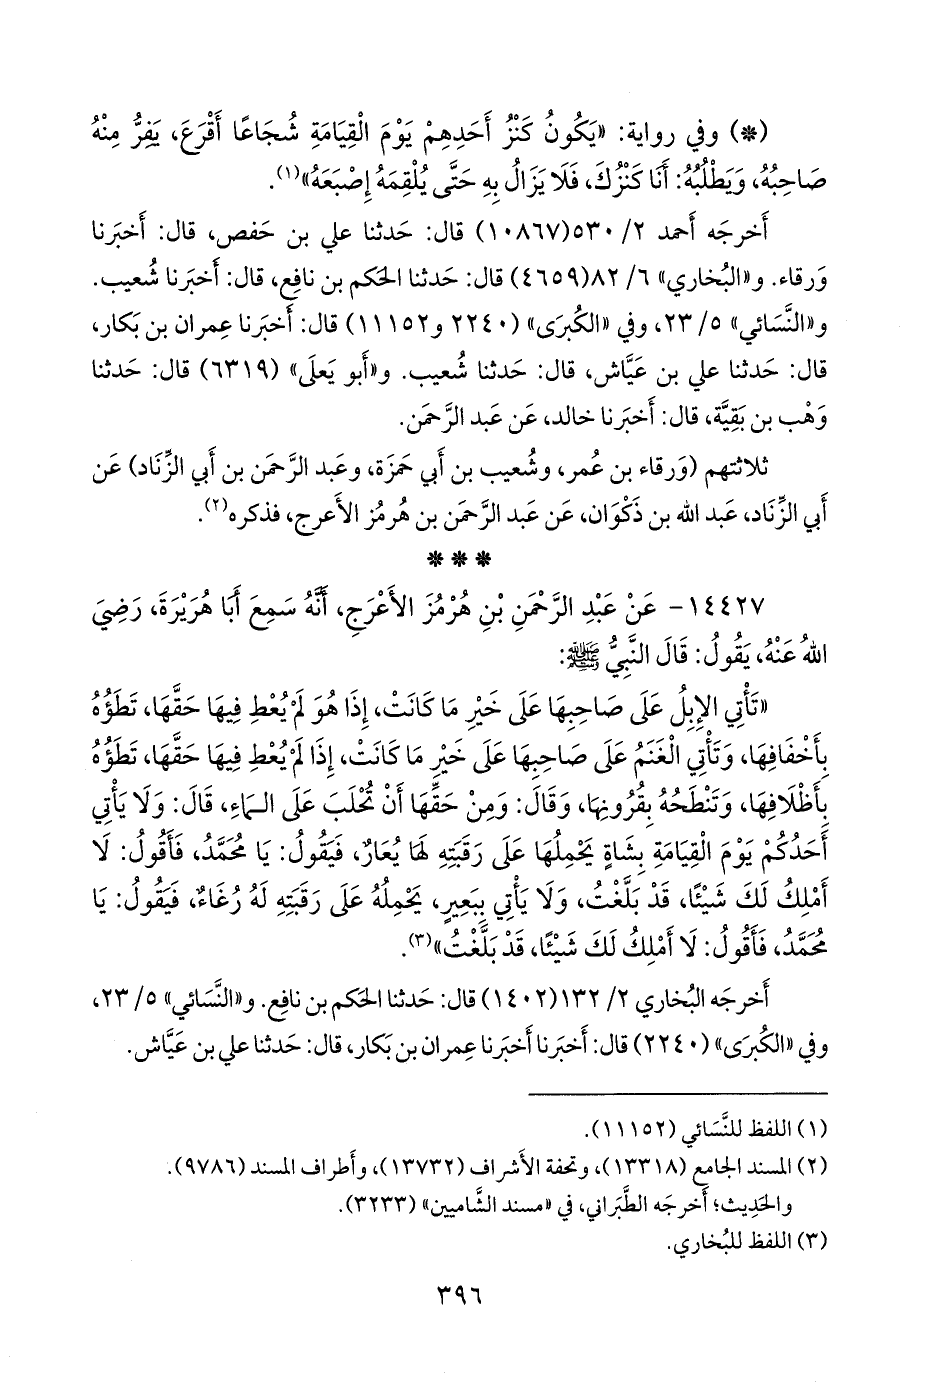 (*) وفي رواية: «يَكُونُ كَنْزُ أَحَدِهِمْ يَوْمَ الْقِيَامَةِ شُجَاعًا أَقْرَعَ، يَفِرُّ مِنْهُ
صَاحِبُهُ، وَيَطْلُبُهُ: أَنَا كَنْزُكَ، فَلَا يَزَالُ بِهِ حَتَّى يُلْقِمَهُ إِصْبَعَهُ»(١).
أَخرجَه أَحمد ٢/ ٥٣٠(١٠٨٦٧) قال: حَدثنا علي بن حَفص، قال: أَخبَرنا
وَرقاء. و«البُخاري» ٦/ ٨٢(٤٦٥٩) قال: حَدثنا الحَكم بن نافِع، قال: أَخبَرنا شُعيب.
و«النَّسَائي» ٥/ ٢٣، وفي «الكُبرَى» (٢٢٤٠ و١١١٥٢) قال: أَخبَرنا عِمران بن بَكار،
قال: حَدثنا علي بن عَيَّاش، قال: حَدثنا شُعيب. و«أَبو يَعلَى» (٦٣١٩) قال: حَدثنا
وَهْب بن بَقِيَّة، قال: أَخبَرنا خالد، عَن عَبد الرَّحمَن.
ثلاثتهم (وَرقاء بن عُمر، وشُعيب بن أَبي حَمزَة، وعَبد الرَّحمَن بن أَبي الزِّنَاد) عَن
أَبي الزِّنَاد، عَبد الله بن ذَكْوَان، عَن عَبد الرَّحمَن بن هُرمُز الأَعرج، فذكره(٢).
* * *
١٤٤٢٧- عَنْ عَبْدِ الرَّحْمَنِ بْنِ هُرْمُزَ الأَعْرَجِ، أَنَّهُ سَمِعَ أَبَا هُرَيْرَةَ، رَضِيَ
اللهُ عَنْهُ، يَقُولُ: قَالَ النَّبِيُّ ﷺ:
«تَأْتِي الإِبِلُ عَلَى صَاحِبِهَا عَلَى خَيْرِ مَا كَانَتْ، إِذَا هُوَ لَمْ يُعْطِ فِيهَا حَقَّهَا، تَطَؤُهُ
بِأَخْفَافِهَا، وَتَأْتِي الْغَنَمُ عَلَى صَاحِبِهَا عَلَى خَيْرِ مَا كَانَتْ، إِذَا لَمْ يُعْطِ فِيهَا حَقَّهَا، تَطَؤُهُ
بِأَظْلَافِهَا، وَتَنْطَحُهُ بِقُرُونِهَا، وَقَالَ: وَمِنْ حَقِّهَا أَنْ تُحْلَبَ عَلَى الـمَاءِ، قَالَ: وَلَا يَأْتِي
أَحَدُكُمْ يَوْمَ الْقِيَامَةِ بِشَاةٍ يَحْمِلُهَا عَلَى رَقَبَتِهِ لَهَا يُعَارٌ، فَيَقُولُ: يَا مُحَمَّدُ، فَأَقُولُ: لَا
أَمْلِكُ لَكَ شَيْئًا، قَدْ بَلَّغْتُ، وَلَا يَأْتِي بِبَعِيرٍ، يَحْمِلُهُ عَلَى رَقَبَتِهِ لَهُ رُغَاءٌ، فَيَقُولُ: يَا
مُحَمَّدُ، فَأَقُولُ: لَا أَمْلِكُ لَكَ شَيْئًا، قَدْ بَلَّغْتُ»(٣).
أَخرجَه البُخاري ٢/ ١٣٢(١٤٠٢) قال: حَدثنا الحَكم بن نافِع. و«النَّسَائي» ٥/ ٢٣،
وفي «الكُبرَى» (٢٢٤٠) قال: أَخبَرنا أَخبَرنا عِمران بن بَكار، قال: حَدثنا علي بن عَيَّاش.
(١) اللفظ للنَّسَائي (١١١٥٢).
(٢) المسند الجامع (١٣٣١٨)، وتحفة الأشراف (١٣٧٣٢)، وأطراف المسند (٩٧٨٦).
والحَدِيث؛ أَخرجَه الطَّبَراني، في «مسند الشَّاميين» (٣٢٣٣).
(٣) اللفظ للبُخاري.
٣٩٦